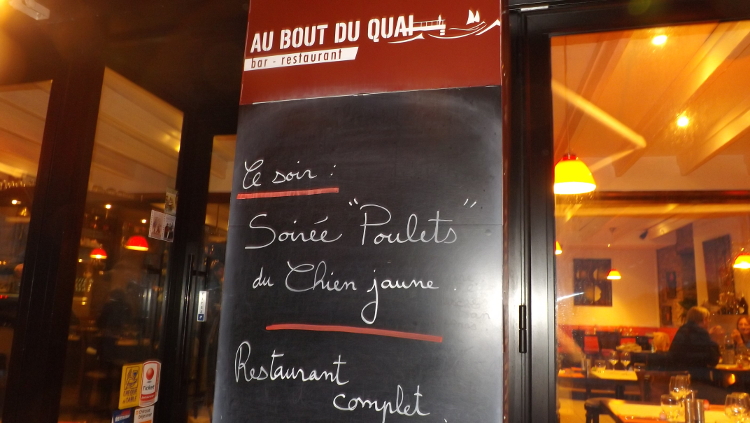 AU BOUT DU QUAI
bar - restaurant
Ce soir :
Soirée "Poulets"
du Chien jaune
Restaurant
complet